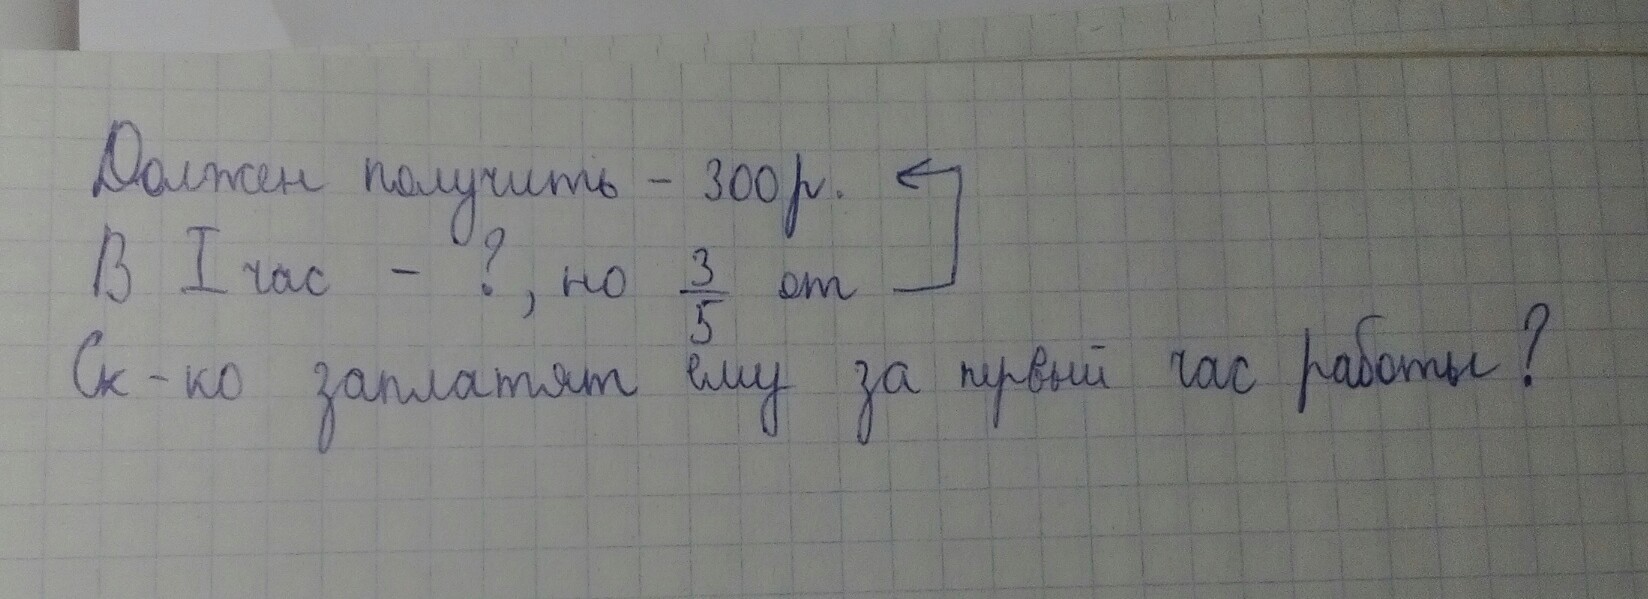 Должен получить - 300 р.
В I час - ?, но 3/5 от
Ск-ко заплатят ему за первый час работы?